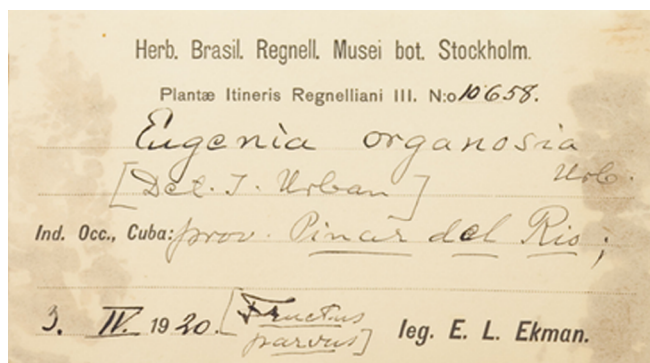 Herb. Brasil. Regnell. Musei bot. Stockholm.
Plantæ Itineris Regnelliani III. N:o 10658.
Eugenia organosia
Urb.
[Det. I. Urban]
Ind. Occ., Cuba: prov. Pinar del Rio;
3. IV. 1920. [Fructus
parvus] leg. E. L. Ekman.